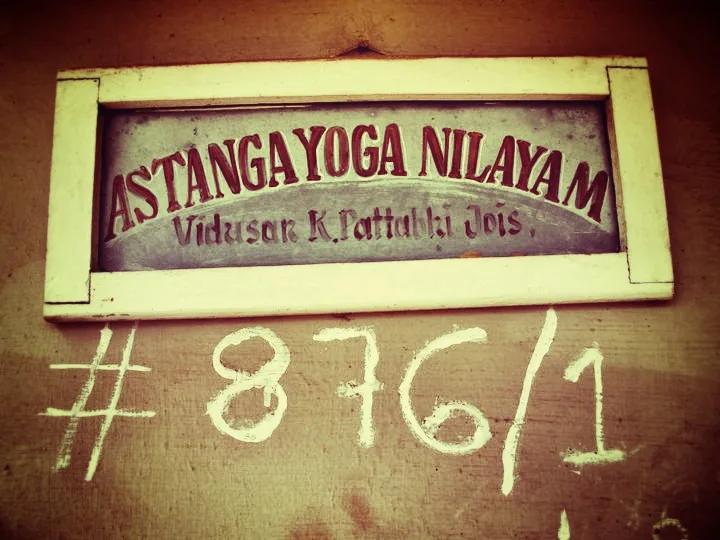 ASTANGA YOGA NILAYAM
Vidusan K. Pattabhi Jois.
# 876/1